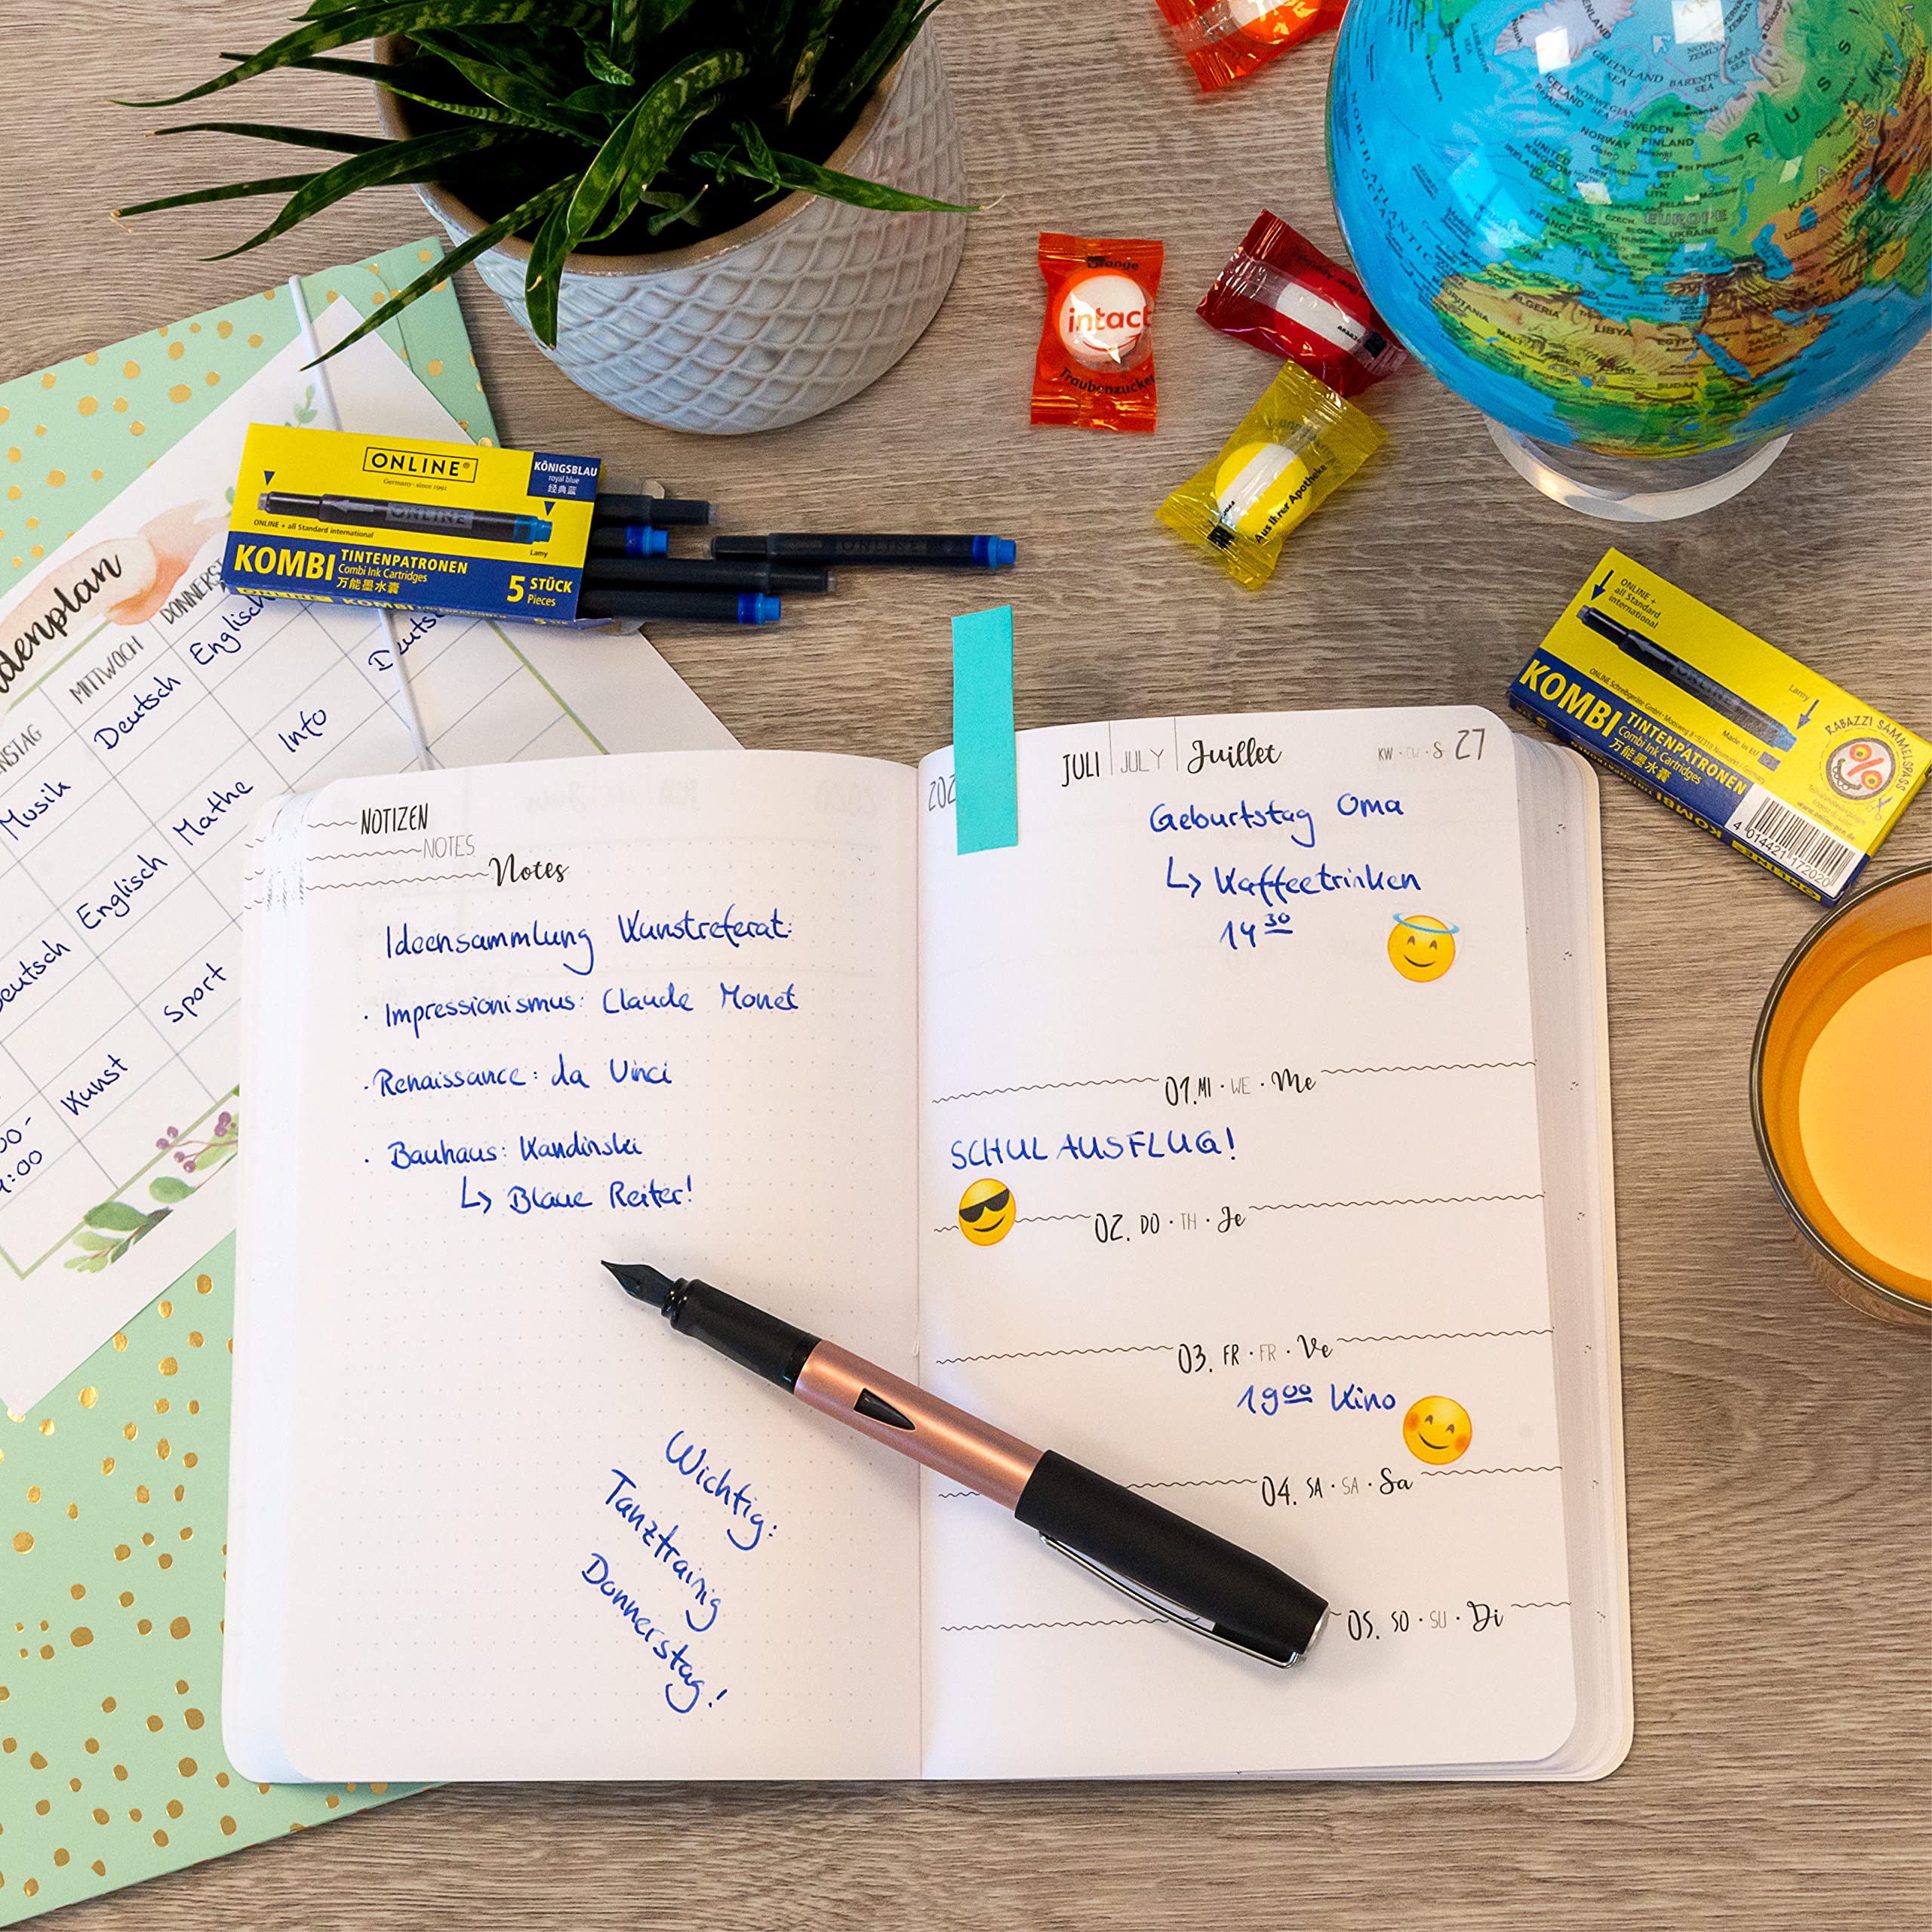 GREENLAND SEA
BARENTS SEA
NORWEGIAN SEA
ICELAND
SWEDEN
NORWAY
FINLAND
Oslo
Helsinki
UNITED KINGDOM
IRELAND
St Petersburg
Moscow
RUSSI
EST.
LAT.
LITH.
KAZAKHSTAN
EUROPE
FRANCE
UKRAINE
NORTH ATLANTIC OCEAN
ALGERIA
LIBYA
EGYPT
SUDAN
AFRICA
Orange
intact
Traubenzucker
Aus Ihrer Apotheke
ONLINE®
Germany · since 1991
KÖNIGSBLAU
royal blue
经典蓝
ONLINE
ONLINE + all Standard international
Lamy
KOMBI TINTENPATRONEN
Combi Ink Cartridges
万能墨水囊
5 STÜCK
Pieces
ONLINE
ONLINE +
all Standard
international
ONLINE
Lamy
Made in EU
KOMBI TINTENPATRONEN
Combi Ink Cartridges
万能墨水囊
RABAZZI SAMMELSPASS
4 014421 172020
denplan
NSTAG
MITTWOCH
DONNERST
Musik
Deutsch
Englisch
Deuts
Info
Mathe
Englisch
eutsch
Sport
Kunst
00-
:00
NOTIZEN
NOTES
Notes
Ideensammlung Kunstreferat:
· Impressionismus: Claude Monet
· Renaissance: da Vinci
· Bauhaus: Kandinski
↳ Blaue Reiter!
Wichtig:
Tanztrainig
Donnerstag!
202
JULI | JULY | Juillet
KW · CW · S 27
Geburtstag Oma
↳ Kaffeetrinken
14 30
01. MI · WE · Me
SCHULAUSFLUG!
02. DO · TH · Je
03. FR · FR · Ve
19 00 Kino
04. SA · SA · Sa
05. SO · SU · Di